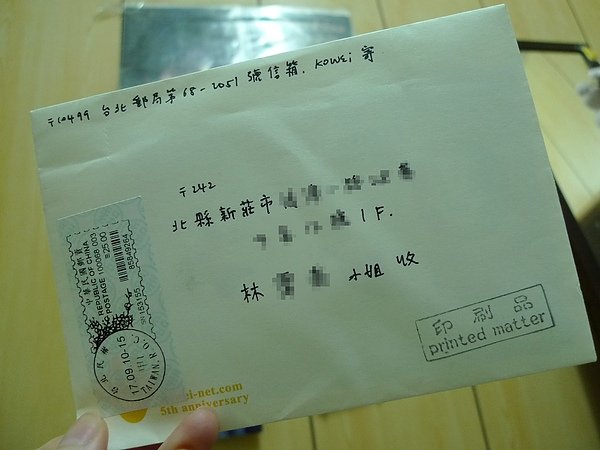 〒10499 台北郵局第68-2051號信箱. KOWei 寄
〒242
北縣新莊市
1F.
林 小姐 收
中華民國郵資
REPUBLIC OF CHINA
POSTAGE 100068 003
25.00
85849264
17.09.10-15
TAIWAN, R.O.
印刷品
printed matter
ei-net.com
5th anniversary